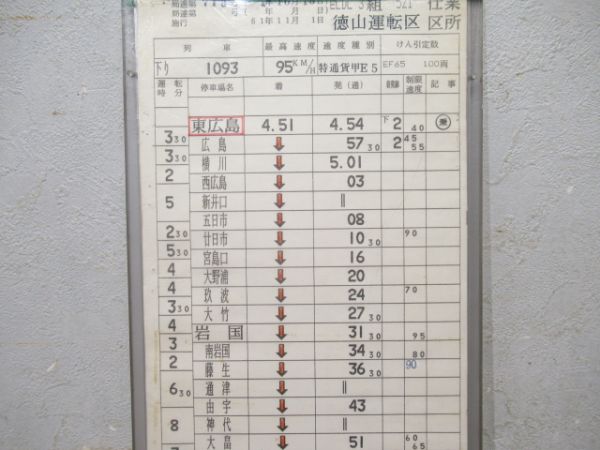 施行 61年11月1日 徳山運転区 区所
列車 最高速度 速度種別 けん引定数
下り 1093 95KM/H 特通貨甲E5 EF65 100両
運転時分 停車場名 着 発(通) 制限速度 記事
東広島 4.51 4.54 下2 40 乗
3 30
広島 57 30 2 45 55
3 30
横川 5.01
2
西広島 03
5
新井口 ‖
五日市 08
2 30
廿日市 10 30 90
5 30
宮島口 16
4
大野浦 20
4
玖波 24 70
3 30
大竹 27 30
4
岩国 31 30 95
3
南岩国 34 30 80
2
藤生 36 30 90
6 30
通津 ‖
由宇 43
8
神代 ‖
大畠 51 60 65